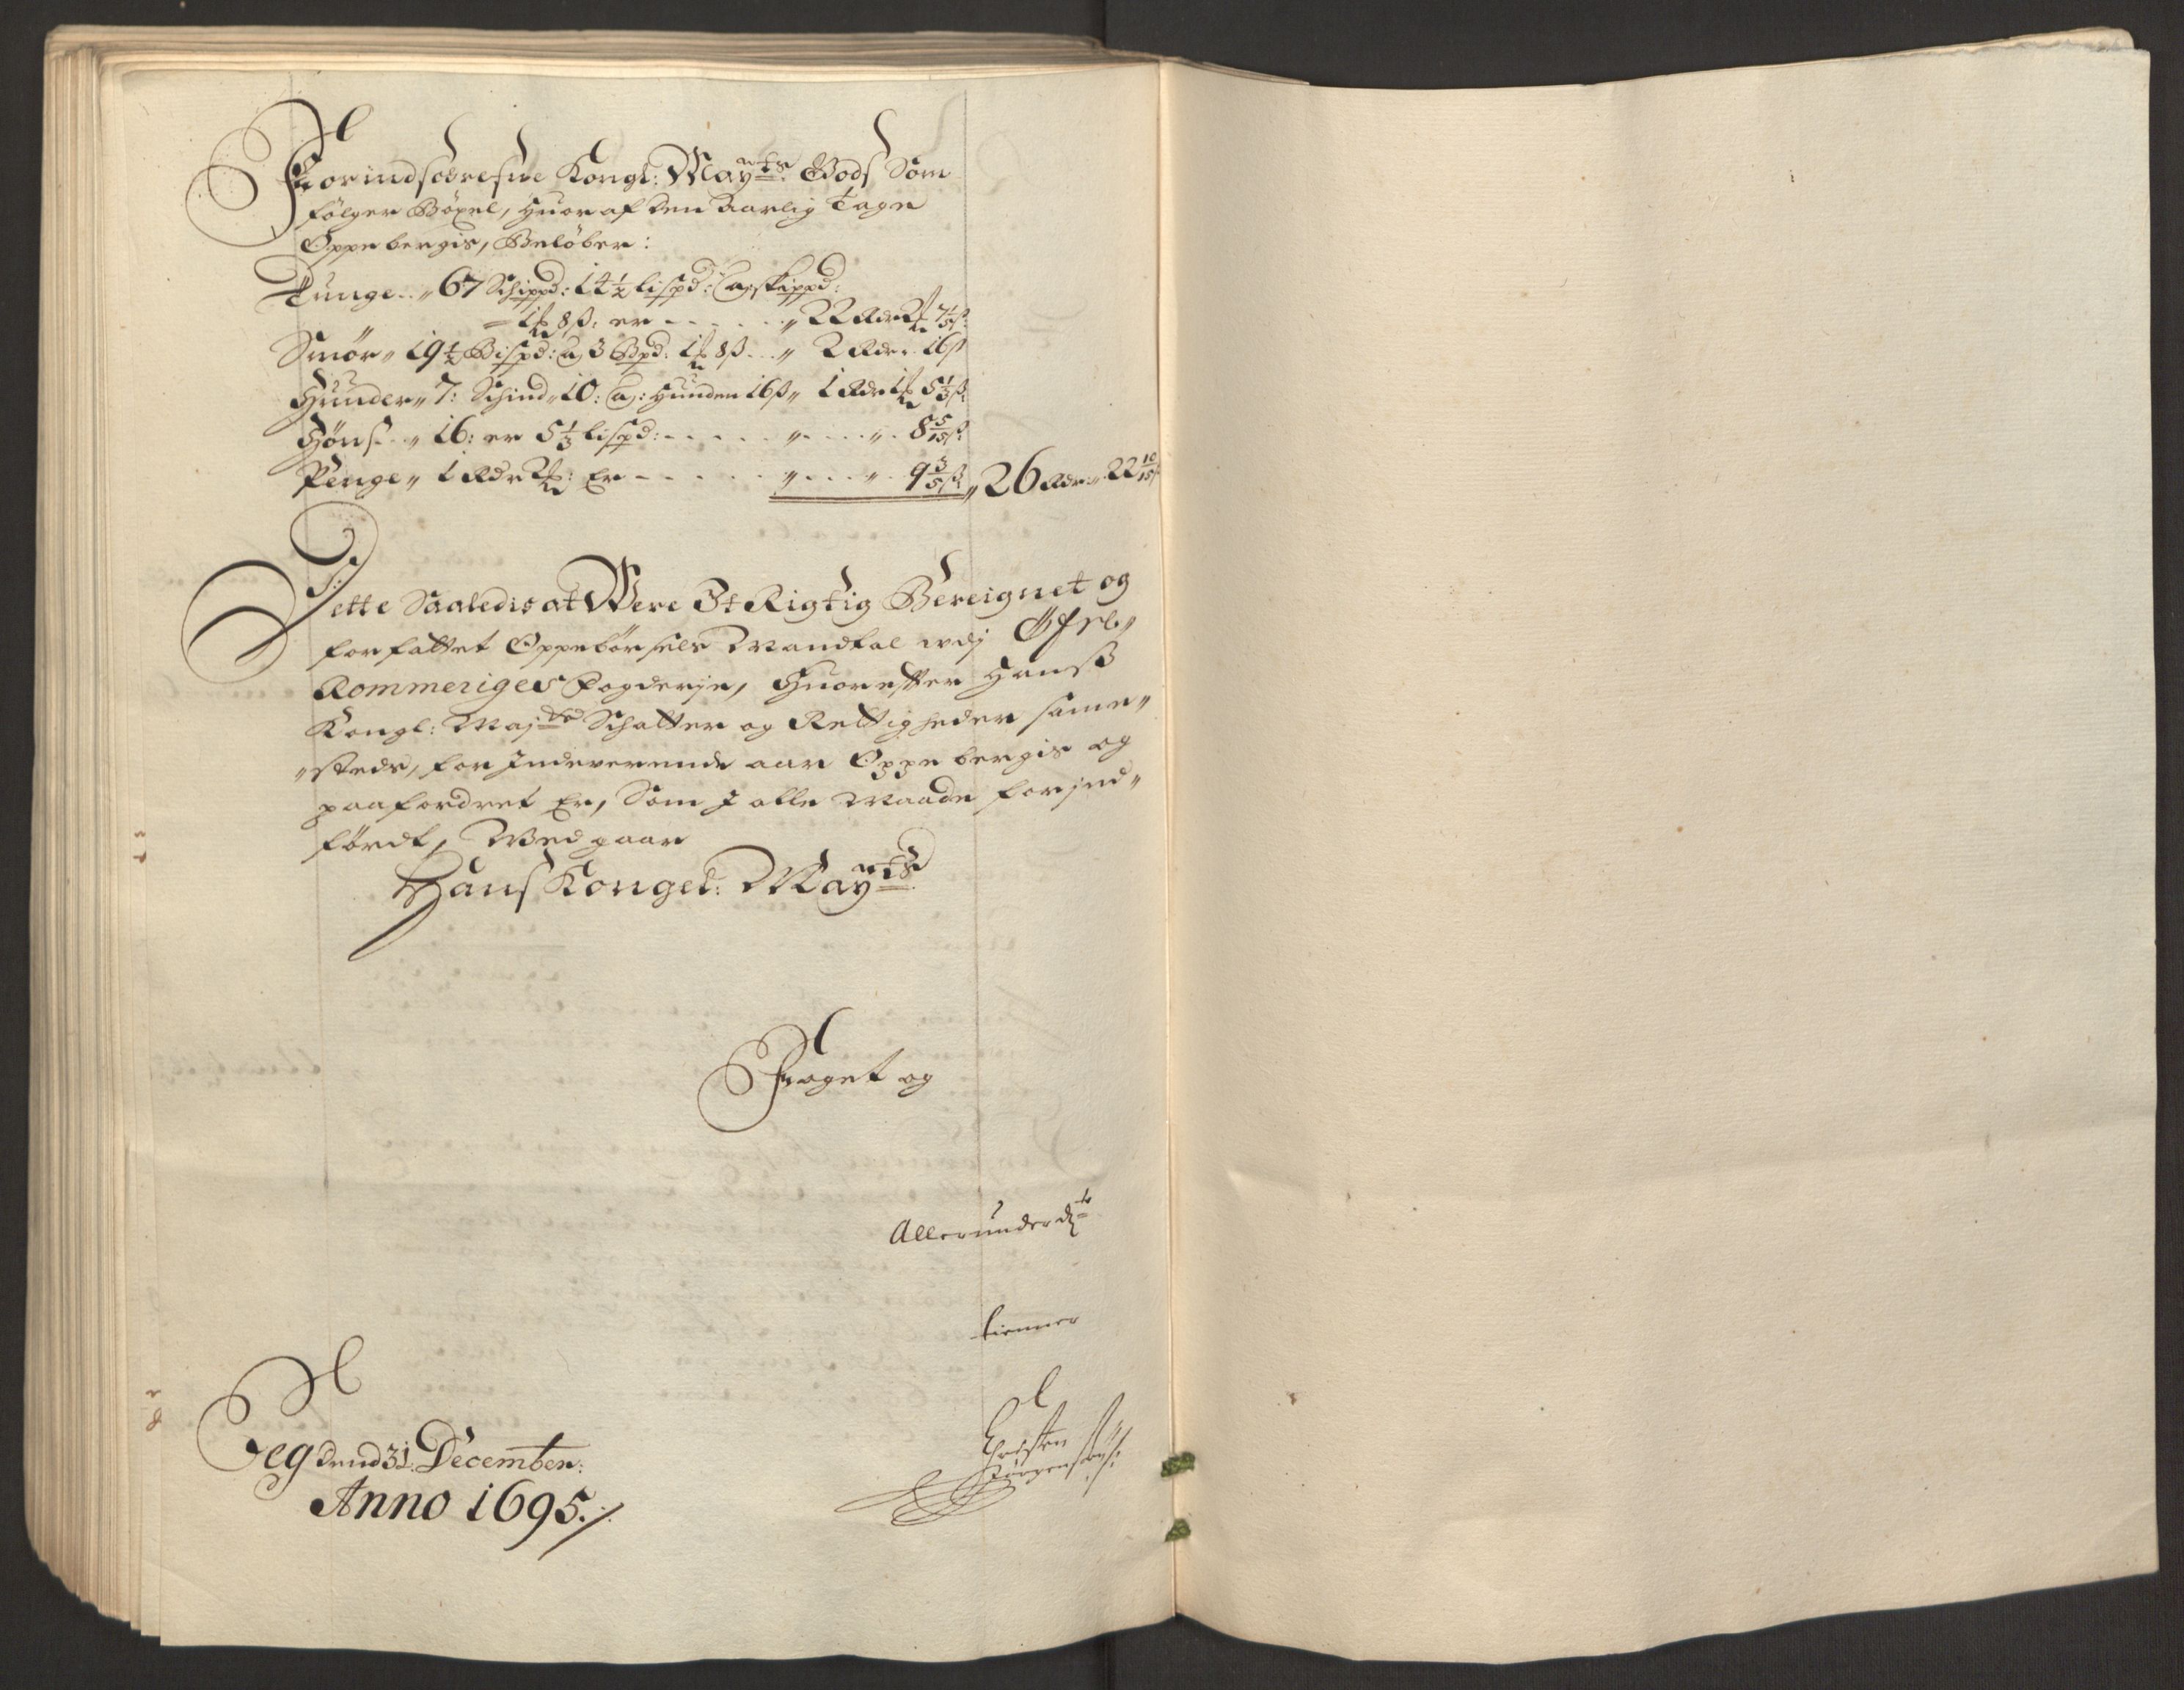 Forindschrefne Kongl: Mayts: Gods Som
følger Böxel, Huor af den Aarlig Tage
Oppebergis, Beløber:
Tunge „ 67 Schippd: 14½ lispd: a skippd:
1 ƒ 8 ß: er - - - „ 22 Rdr 2 ƒ 7⅕ ß:
Smör „ 19½ Bispd: a 3 Bpd: 1 ƒ 8 ß „ 2 Rdr „ 16 ß
Hunder „ 7: Schind „ 10: a: Hunden 16 ß „ 1 Rdr 1 ƒ 5⅓ ß:
Höns „ 16: er 5⅓ lispd: - - - „ - - „ 8 5/15 ß:
Penge „ 1 Rdr 2 ƒ: Er - - - „ - - „ 9⅗ ß: „ 26 Rdr „ 22 10/15 ß
Dette Saaledis at Were Et Rigtig Bereignet og
forfattet Oppebörsels Mandtal udj Öfre
Rommeriges Fogderje, Huorefter Hanß
Kongl: Maj:ts Schatter og Rettigheder samme„
„steds, for Indeverende aar Oppebergis og
paafordret Er, Som J alle Maade forind„
fördt, Wed gaar
Hans Kongel: Mayts
Foget og
Allerunderd:te
tienner
Eeg dend 31 December:
Anno 1695 ./.
Christen